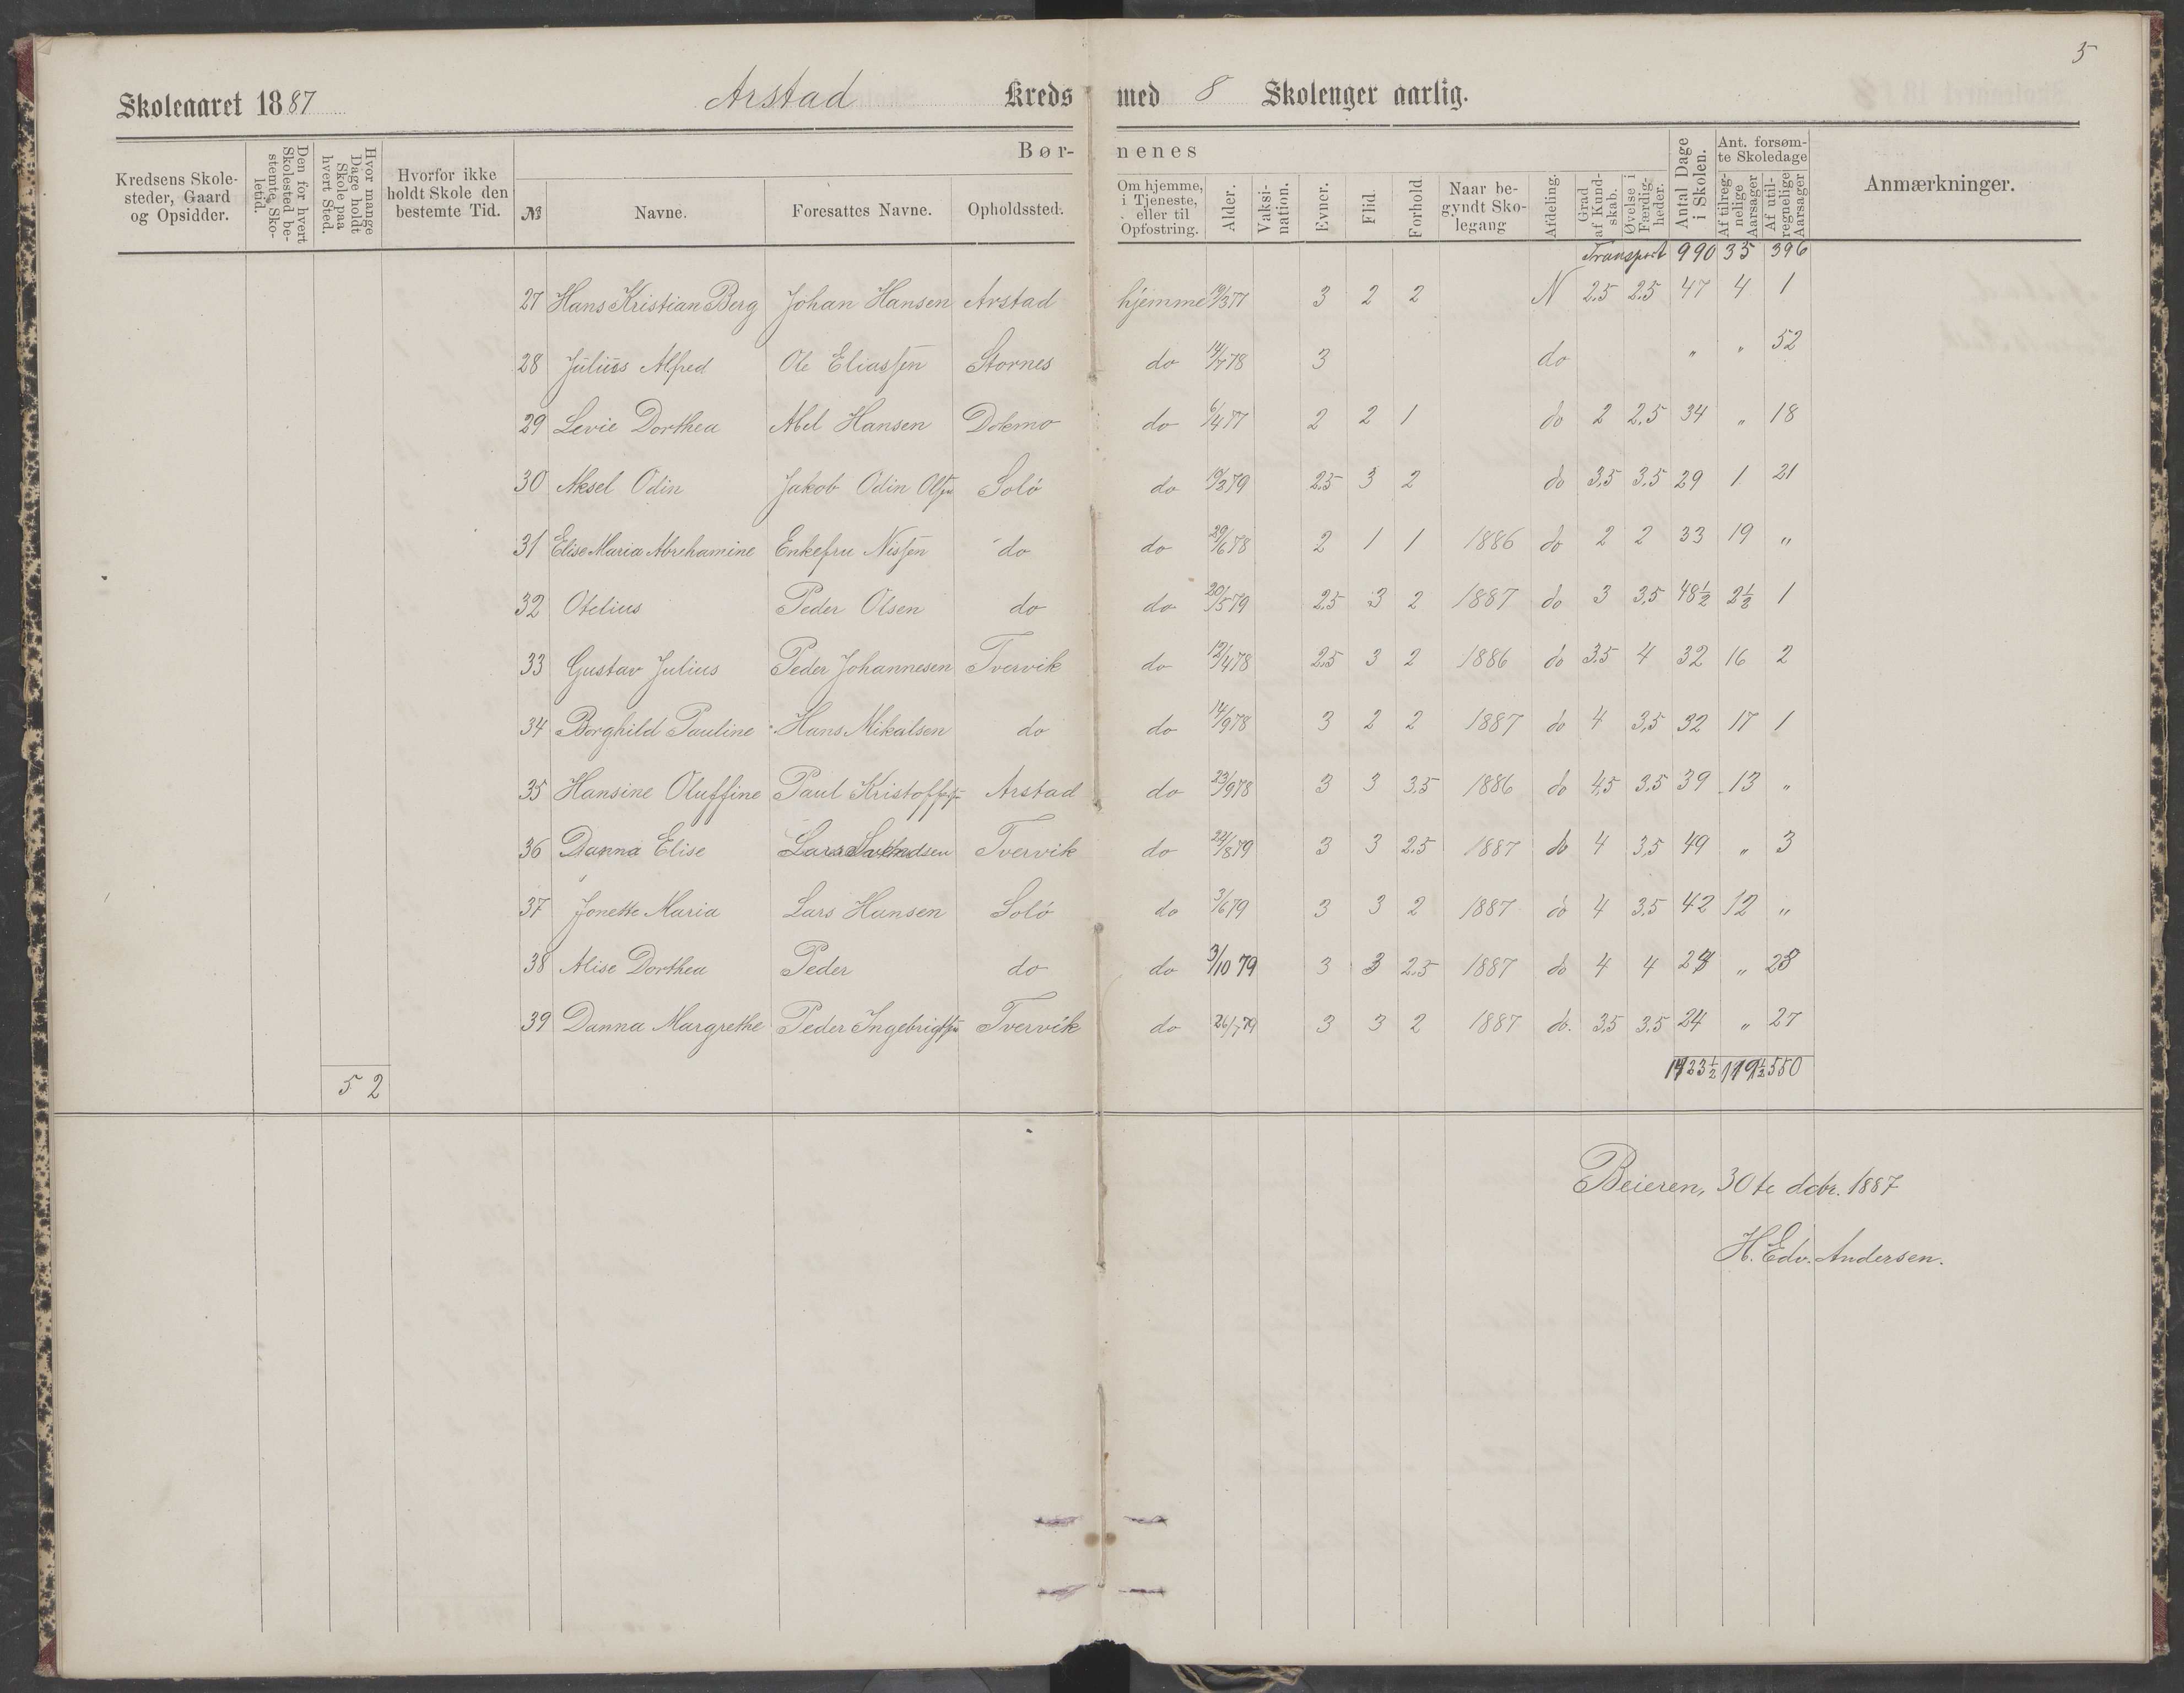 5
Skoleaaret 1887 Arstad Kreds med 8 Skolenger aarlig.
Kredsens Skolesteder, Gaard og Opsidder.
Den for hvert Skolested bestemte Skoletid.
Hvor mange Dage holdt Skole paa hvert Sted.
Hvorfor ikke holdt Skole den bestemte Tid.
Børnenes
№ Navne. Foresattes Navne. Opholdssted.
Om hjemme, i Tjeneste, eller til Opfostring.
Alder. Vaksination. Evner. Flid. Forhold
Naar begyndt Skolegang
Afdeling. Grad af Kundskab. Øvelse i Færdigheder.
Antal Dage i Skolen.
Ant. forsømte Skoledage
Af tilregnelige Aarsager Af utilregnelige Aarsager
Anmærkninger.
Transport 990 35 396
27 Hans Kristian Berg Johan Hansen Arstad hjemme 19/3 77 3 2 2 N 2.5 2.5 47 4 1
28 Julius Alfred Ole Eliassen Stornes do 14/7 78 3 do " " 52
29 Levie Dorthea Abel Hansen Dokmo do 6/4 77 2 2 1 do 2 2.5 34 " 18
30 Aksel Odin Jakob Odin Olsen Solö do 79 2.5 3 2 do 3.5 3.5 29 1 21
31 Elise Maria Abrehamine Enkefru Nissen do do 29/6 78 2 1 1 1886 do 2 2 33 19 "
32 Otelius Peder Olsen do do 20/5 79 2.5 3 2 1887 do 3 3.5 48½ 2½ 1
33 Gustav Julius Peder Johannesen Tvervik do 12/4 78 2.5 3 2 1886 do 3.5 4 32 16 2
34 Borghild Pauline Hans Mikalsen do do 14/9 78 3 2 2 1887 do 4 3.5 32 17 1
35 Hansine Oluffine Paul Kristoffersen Arstad do 23/9 78 3 3 3.5 1886 do 4.5 3.5 39 13 "
36 Danna Elise Lars Tvervik do 24/8 79 3 3 2.5 1887 do 4 3.5 49 " 3
37 Jonette Maria Lars Hansen Solö do 3/6 79 3 3 2 1887 do 4 3.5 42 12 "
38 Alise Dorthea Peder do do 3/10 79 3 3 2.5 1887 do 4 4 24 " 28
39 Danna Margrethe Peder Ingebrigtsen Tvervik do 26/7 79 3 3 2 1887 do. 3.5 3.5 24 " 27
52 1423½ 119½ 550
Beieren, 30te dcbr. 1887
H. Edv. Andersen.